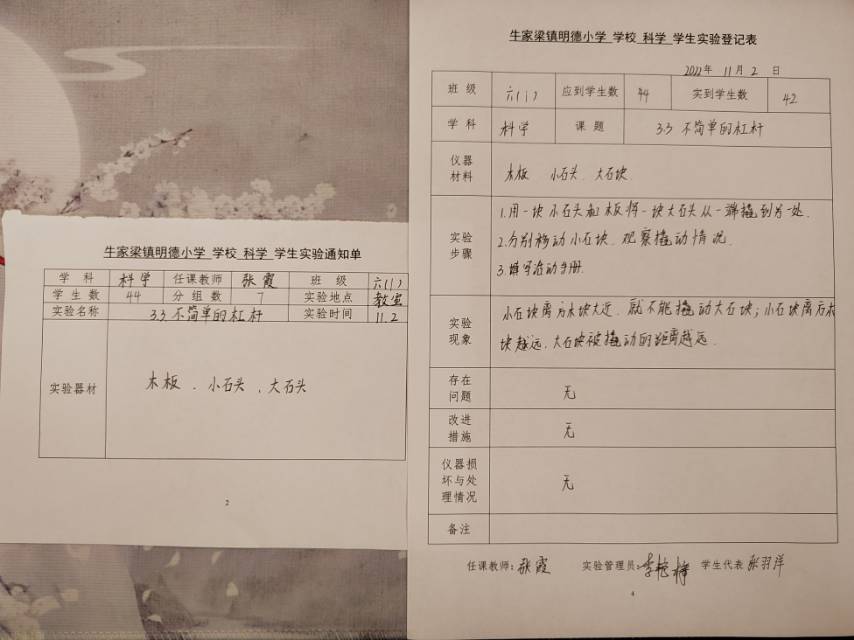 牛家梁镇明德小学 学校 科学 学生实验通知单
学 科 科学 任课教师 张霞 班 级 六(1)
学 生 数 44 分 组 数 7 实验地点 教室
实验名称 3.3 不简单的杠杆 实验时间 11.2
实验器材 木板 、小石头 、大石头
2
牛家梁镇明德小学 学校 科学 学生实验登记表
2022年 11月 2 日
班 级 六(1) 应到学生数 44 实到学生数 42
学 科 科学 课 题 3.3 不简单的杠杆
仪器
材料
木板 小石头、大石块.
实验
步骤
1.用一块小石头和木板将一块大石头从一端撬到另一处.
2.分别移动小石块.观察撬动情况.
3.填写活动手册.
实验
现象
小石块离方木块太近.就不能撬动大石块;小石块离方木
块越远.大石块被撬动的距离越远.
存在
问题
无
改进
措施
无
仪器损
坏与处
理情况
无
备注
任课教师:张霞 实验管理员: 学生代表 张羽洋
4